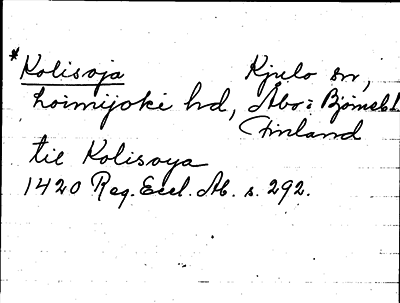 *Kolisoja Kjulo sn,
Loimijoki hd, Åbo: Björneb l.
Finland
til Kolisoya
1420 Reg. Eccl. Ab. s. 292.